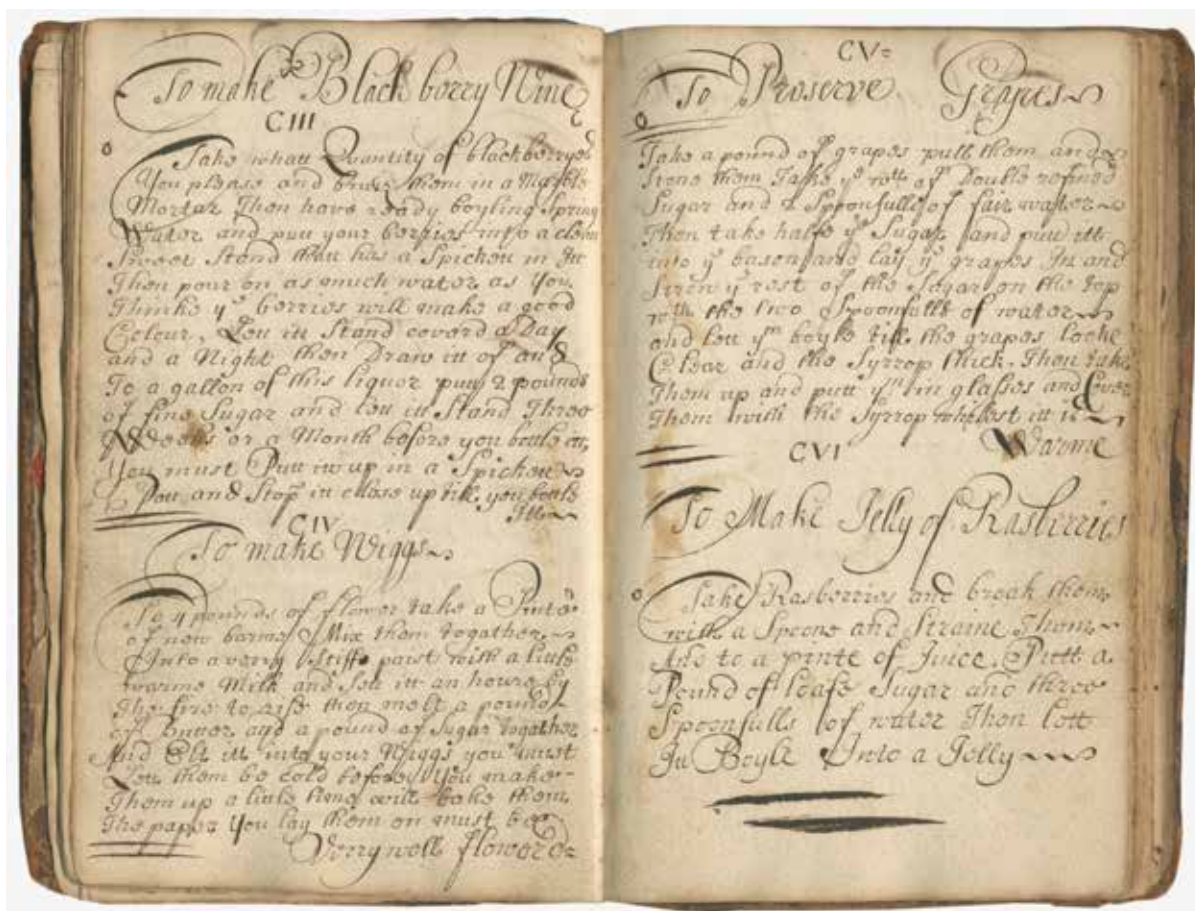 To make Black berry Wine
CIII
Take whatt Quantity of blackberryes
You please and bruis them in a Marble
Mortar Then have ready boyling Spring
Water and putt your berries into a clean
Sweet Stand that has a Spickett in itt
Then pour on as much water as You
Thinke ye berries will make a good
Colour, Lett itt Stand coverd a Day
and a Night then Draw itt of and
To a gallon of this liquor putt 2 pounds
of fine Sugar and lett itt Stand Three
Weeks or a Month before you bottle itt,
You must Putt itt up in a Spickett
Pott and Stop itt close up till you bottle
Itt
CIV
To make Wiggs
To 4 pounds of flower take a Pinte
of new barme Mix them togather
Into a verry Stiffe past with a little
warme Milk and Sett itt an houre by
The fire to rise then melt a pound
of Butter and a pound of Sugar togather
And itt into your Wiggs you must
Lett them be cold before You make
Them up a little time will bake them
The paper You lay them on must be
Verry well flowerd
CV
To Preserve Grapes
Take a pound of grapes pull them and
Stone them Take ye of Double refined
Sugar and 2 Spoonfulls of fair water
Then take halfe ye Sugar and putt itt
into ye bason and lay ye grapes In and
Strew ye rest of the Sugar on the top
wth the two Spoonfulls of water
and lett ym boyle till the grapes looke
Clear and the Syrrop thick, Then take
Them up and putt ym in glasses and Cover
Them with the Syrrop whilest itt is
Warme
CVI
To Make Jelly of Rasberries
Take Rasberries and break them
with a Spoone and Straine Them
And to a pinte of Juice, Putt a
Pound of loafe Sugar and three
Spoonfulls of water Then lett
Itt Boyle Into a Jelly